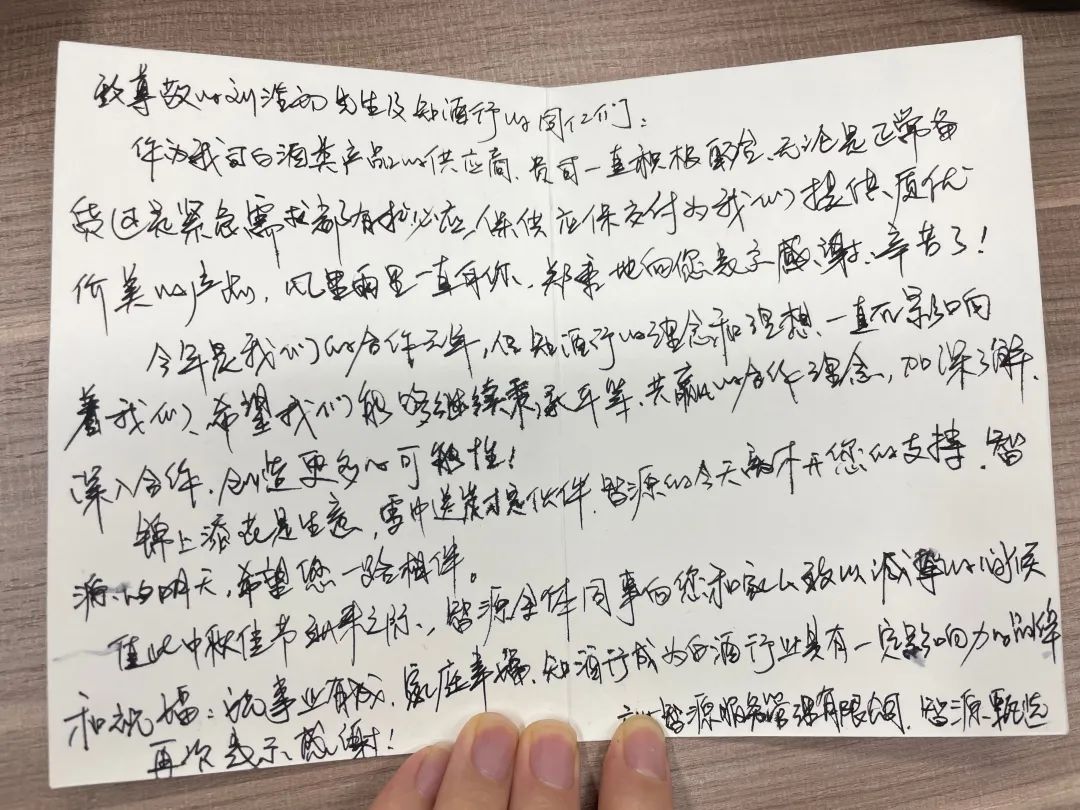 致尊敬的刘淦初先生及知酒行的同仁们：
作为我司白酒类产品的供应商、贵司一直积极配合、无论是正常备
货还是紧急需求都有求必应，保供应保交付为我们提供质优
价美的产品，风里雨里一直有你、郑重地向您表示感谢、辛苦了！
今年是我们的合作元年，但知酒行的理念和理想、一直在影响
着我们、希望我们能够继续秉承平等、共赢的合作理念，加深了解、
深入合作、创造更多的可能性！
锦上添花是生意，雪中送炭才是伙伴、智源的今天离不开您的支持、智
源的明天，希望您一路相伴。
值此中秋佳节到来之际、智源全体同事向您和家人致以诚挚的问候
和祝福：祝事业有成、家庭幸福、知酒行成为白酒行业具有一定影响力的品牌
再次表示感谢！
智源服务管理有限公司、智源甄选